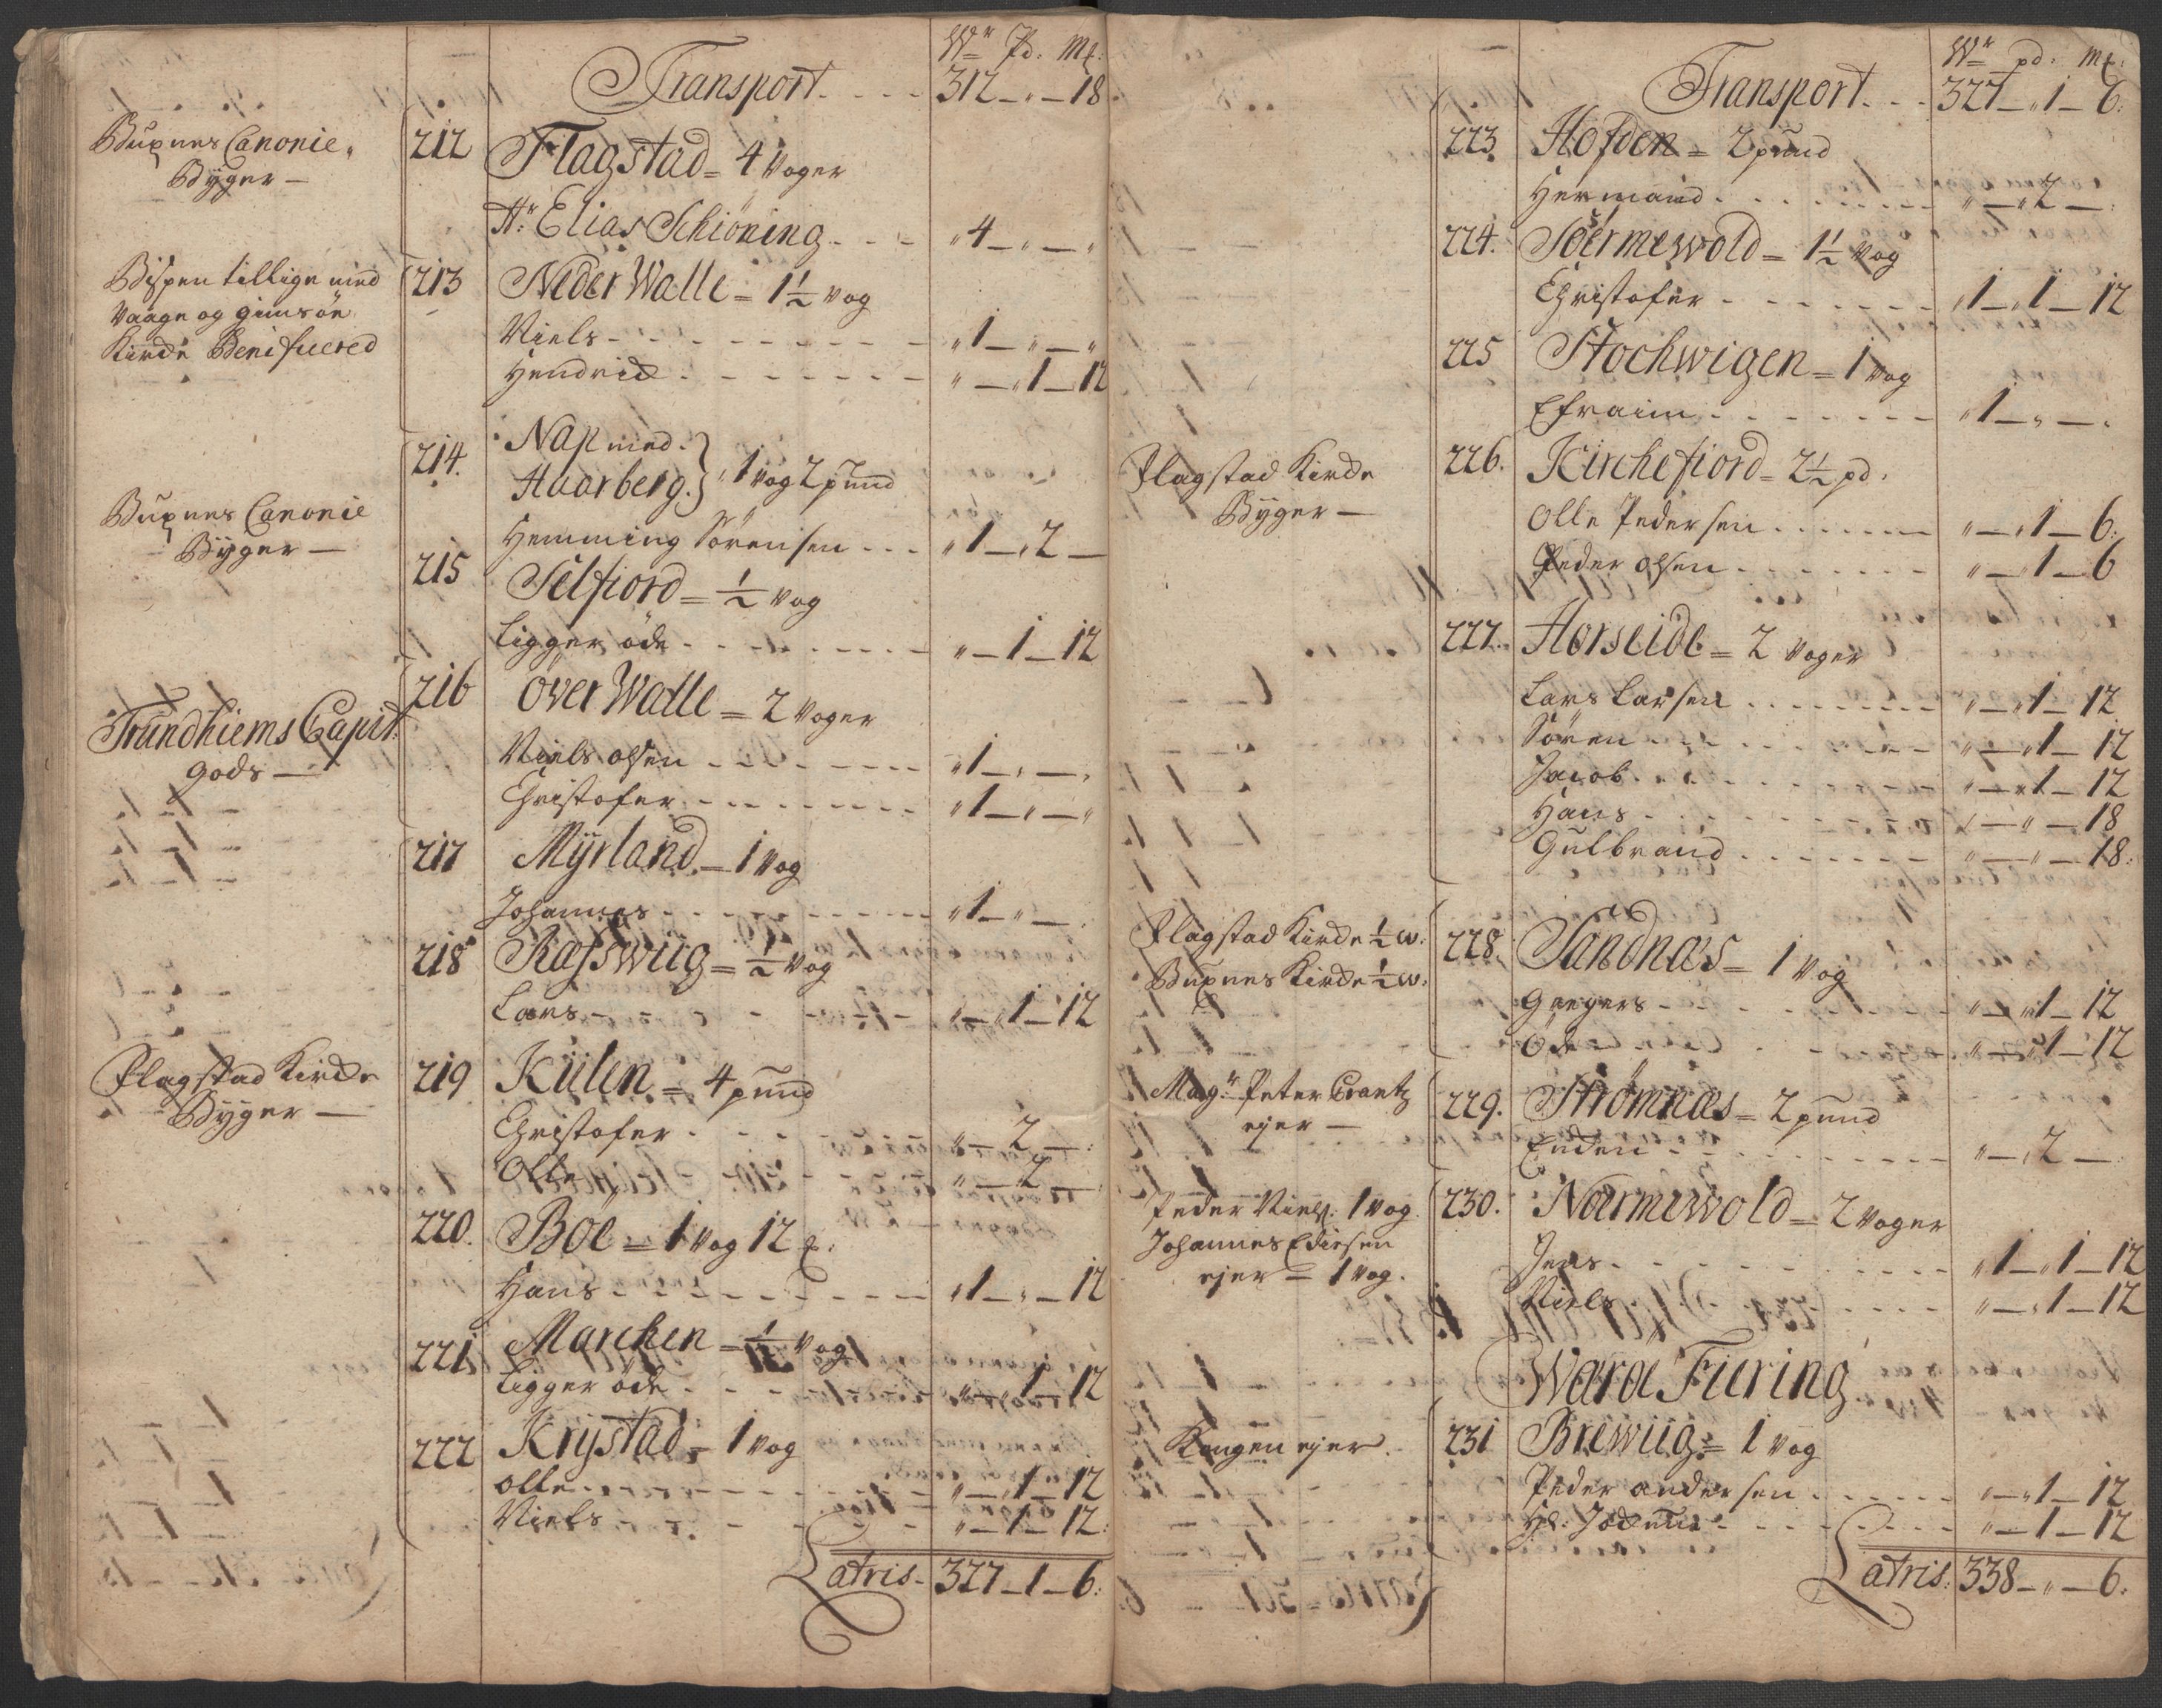 Wr Pd. Mk:
Transport. - - - 312 – „ – 18
Buxnes Canonie
Byger –
212 Flagstad = 4 Voger
Hr: Elias Schiöning - - - „ 4 – „ – „
Bispen tillige med
Vaage og gimsöe
Kirche Benificered
213 Neder Walle = 1 1/2 Vog
Niels - - - „ 1 – „ – „
Hendrich - - - „ – „ 1 – 12
214. Nap med
Haarberg. } 1 Vog 2 pund
Buxnes Canonie
Byger –
Hemming Sörensen - - - „ 1 – „ 2 –
215 Selfiord = 1/2 Vog
Ligger öde - - - „ – 1 – 12
216 över Walle = 2 Voger
Trundhiems Capit:
Gods –
Niels olsen - - - „ 1 – „ – „
Christofer - - - „ 1 – „ – „
217 Myrland – 1 Vog
Johannes - - - „ 1 – „ –
218 Ræfswiig = 1/2 Vog
Lars - - - „ – „ 1 – 12
Flagstad Kirche
Byger –
219 Kiilen = 4 pund
Christofer - - - „ – 2 –
Olle „ – 2 –
220. Böe = 1 Vog 12 Mk:
Hans - - - „ 1 – „ – 12
221 Marchen = 1/2 Vog
Ligger öde - - - „ – „ 1 – 12
222 Krystad = 1 Vog
Olle - - - „ – „ 1 – 12
Niels - - - „ – 1 – 12:
Latris - 327 – 1 – 6:
Wr pd. Mk:
Transport. - - - 327 – „ 1 – 6:
223. Hofden = 2 pund
Hermand - - - „ – „ 2 –
224. Söermewold = 1 1/2 Vog
Christofer - - - „ 1 – „ 1 – 12
225 Stochwigen = 1 Vog
Efraim - - - „ 1 – „ – „
Flagstad Kirche
Byger –
226. Kirchefiord = 2 1/2 pd.
Olle Pedersen - - - „ – „ 1 – 6:
Peder olsen - - - „ – „ 1 – 6
227. Horseide = 2 Voger
Lars Larsen - - - „ – „ 1 – 12
Sören - - - „ – „ 1 – 12
Jacob - - - „ – „ 1 – 12
Hans - - - „ – „ – 18
Gulbrand - - - „ – „ – 18:
Flagstad Kirche 1/2 w:
Buxnes Kirche 1/2 w:
228. Sandnæs = 1 Vog
Gregers - - - „ – „ 1 – 12
Öde - - - „ – „ 1 – 12
Magr: Peter Crantz
ejer –
229. Strömnæs = 2 pund
Enchen - - - „ – „ 2 –
Peder Niels: 1 Vog
Johannes Edissen
ejer = 1 Vog.
230. Nærmewold = 2 Voger
Jens - - - „ 1 – „ 1 – 12
Niels - - - „ – „ 1 – 12
Wærø Fiering
Kongen ejer.
231 Brewiig = 1 Vog
Peder andersen - - - „ – „ 1 – 12
Hl: Jochum - - - „ – 1 – 12
Latris: 338 – „ – 6: